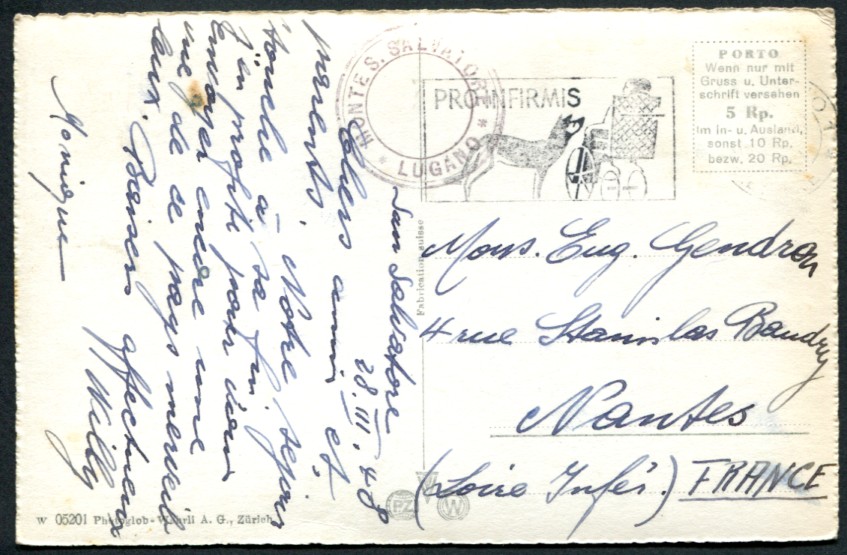 San Salvatore
28.III.48
Chers amis et
parents. Notre séjour
touche à sa fin.
J'en profite pour vous
envoyer encore une
vue de ce pays merveil
leux. Baisers affectueux
Willy
Monique
MONTE S. SALVATORE
* LUGANO *
PRO INFIRMIS
PORTO
Wenn nur mit
Gruss u. Unter-
schrift versehen
5 Rp.
im In- u. Ausland,
sonst 10 Rp.
bezw. 20 Rp.
Fabrication suisse
Mons. Eug. Gendron
4 rue Stanislas Baudry
Nantes
(Loire Infér.) FRANCE
PZ W
W 05201 Photoglob-Wehrli A. G., Zürich